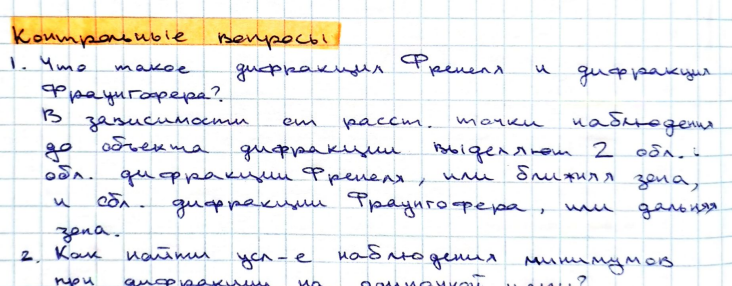 Контрольные вопросы
1. Что такое дифракция Френеля и дифракция
Фраунгофера?
В зависимости от расст. точки наблюдения
до объекта дифракции выделяют 2 обл.:
обл. дифракции Френеля, или ближняя зона,
и обл. дифракции Фраунгофера, или дальняя
зона.
2. Как найти усл-е наблюдения минимумов
при дифракции на одиночной щели?